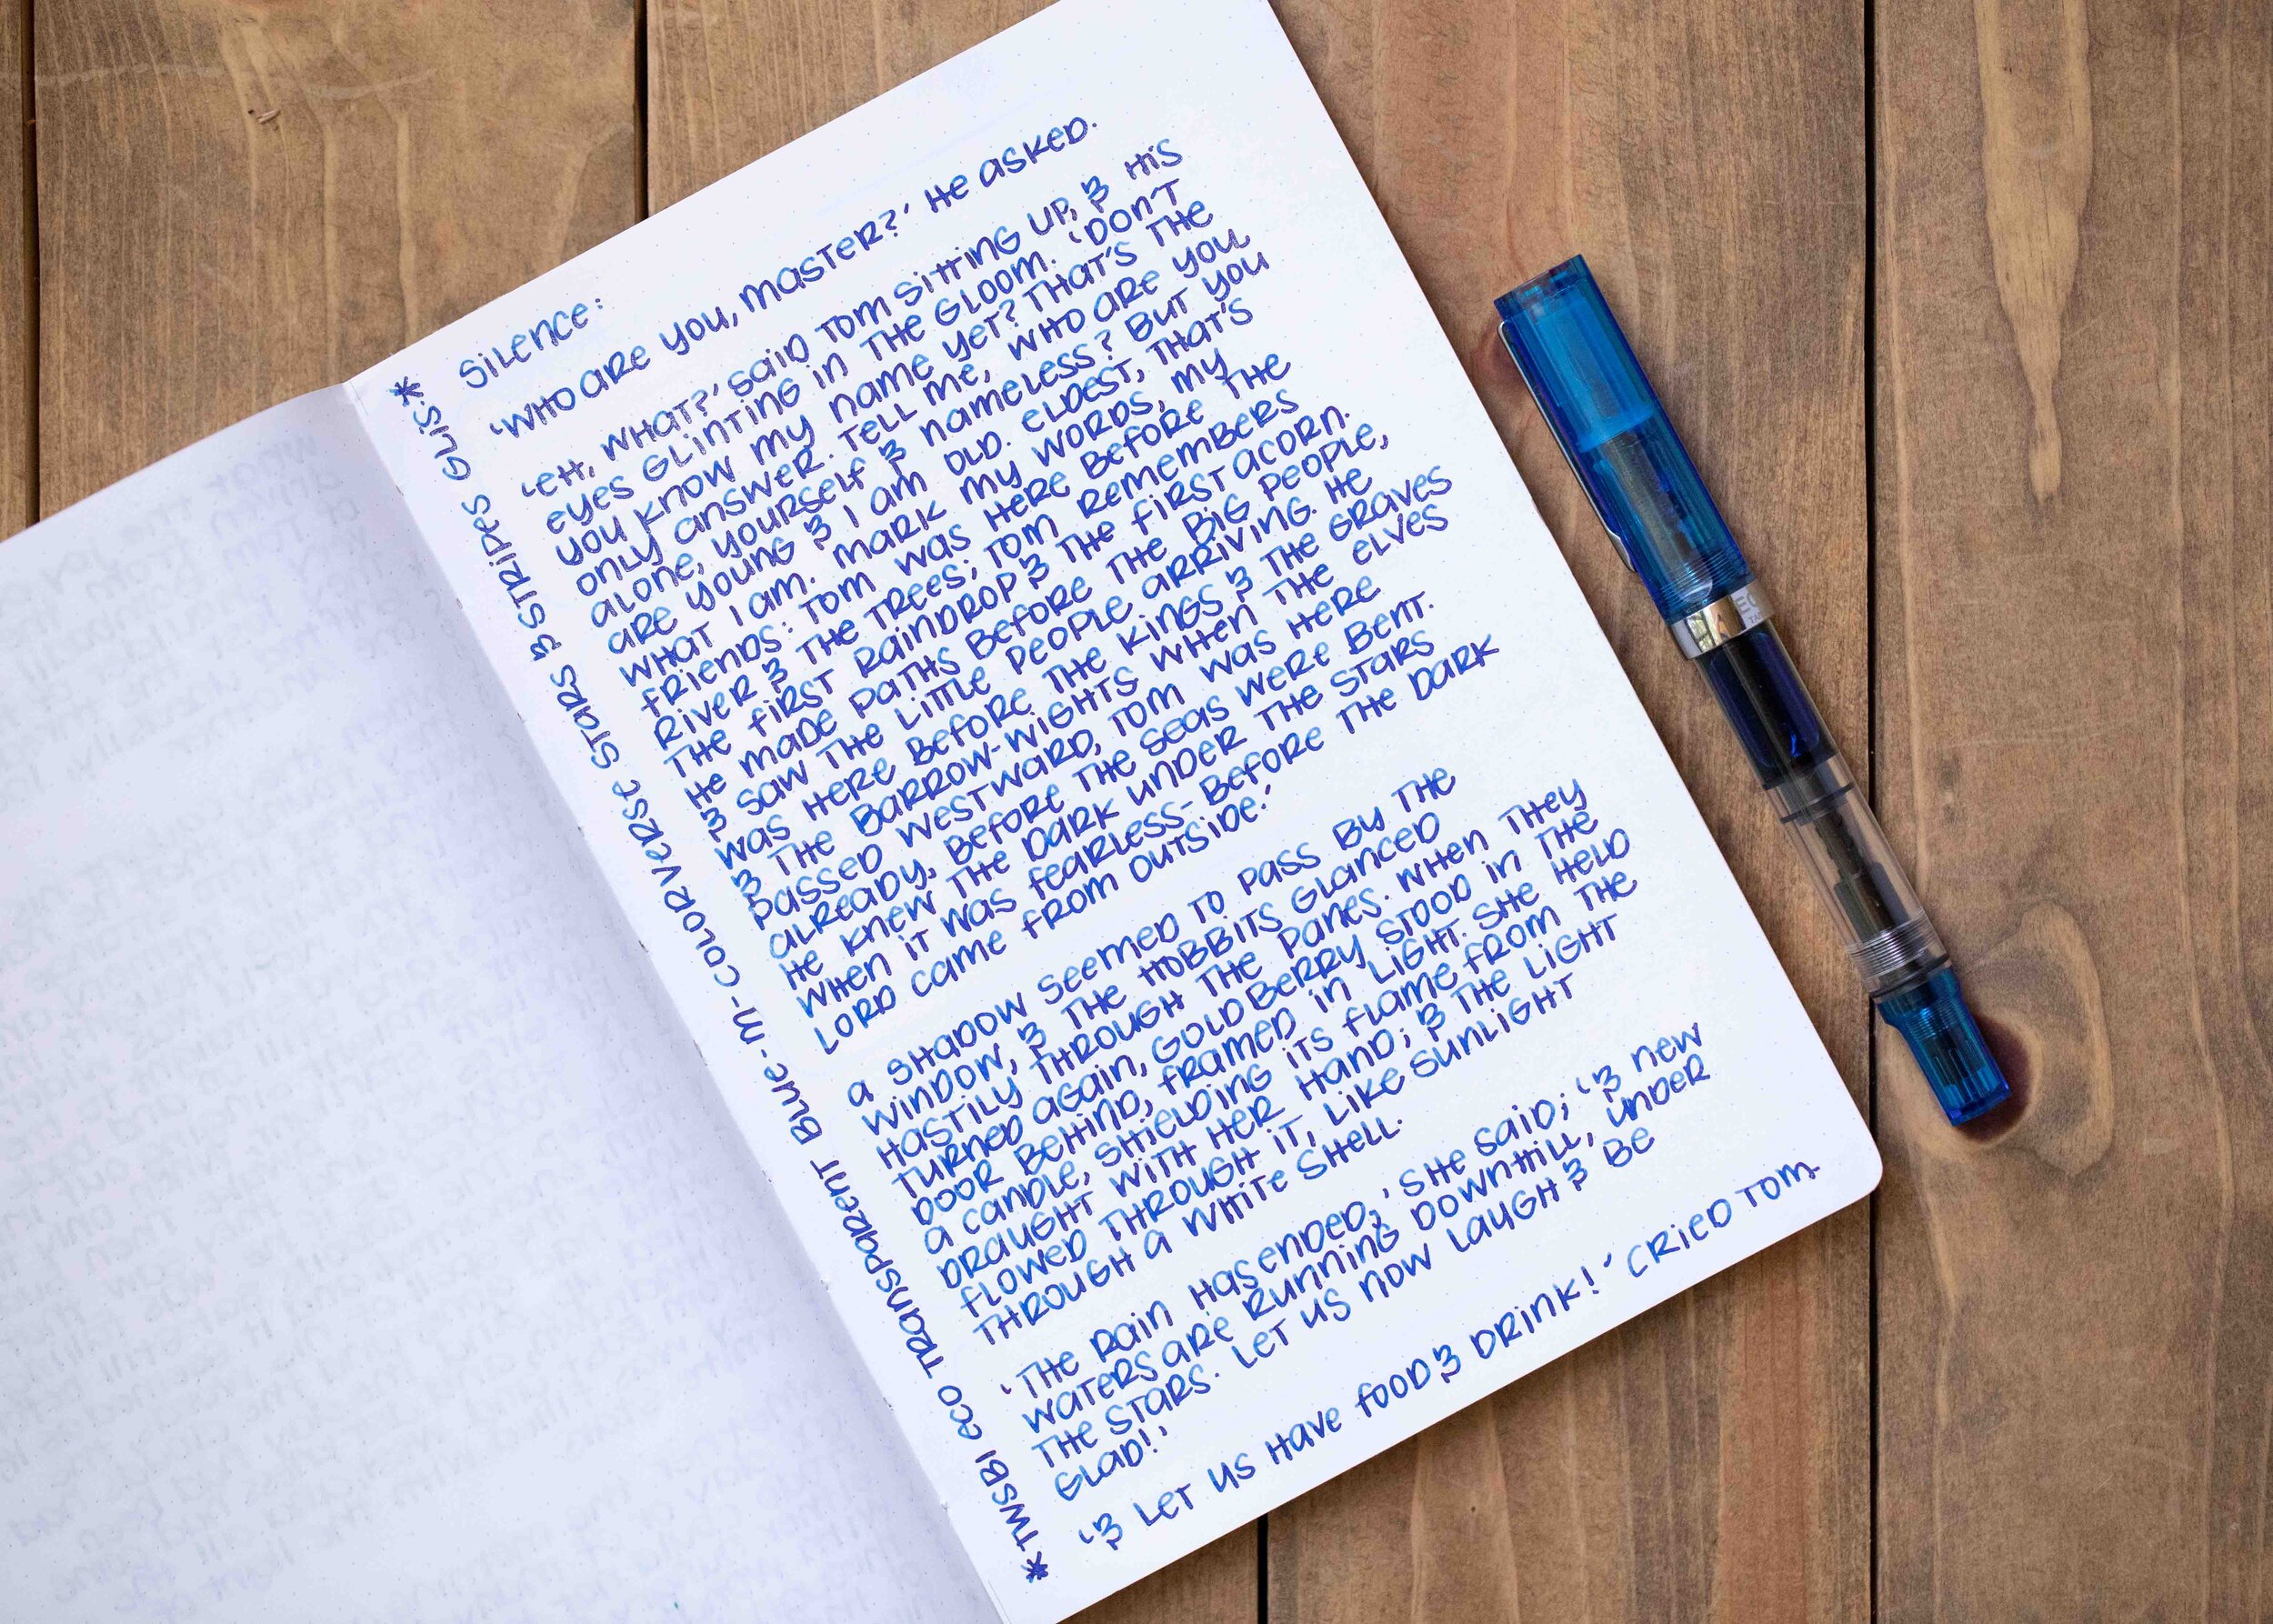 Silence:
'Who are you, Master?' he asked.
'Eh, what?' said Tom sitting up, & his
eyes glinting in the gloom. 'Don't
you know my name yet? That's the
only answer. Tell me, who are you,
alone, yourself & nameless? But you
are young & I am old. Eldest, that's
what I am. Mark my words, my
friends: Tom was here before the
river & the trees; Tom remembers
the first raindrop & the first acorn.
He made paths before the Big People,
& saw the Little People arriving. He
was here before the Kings & the graves
& the Barrow-wights. When the Elves
passed westward, Tom was here
already, before the seas were bent.
He knew the dark under the stars
when it was fearless- before the Dark
Lord came from outside.'
A shadow seemed to pass by the
window, & the hobbits glanced
hastily through the panes. When they
turned again, Goldberry stood in the
door behind, framed in light. She held
a candle, shielding its flame from the
draught with her hand; & the light
flowed through it, like sunlight
through a white shell.
'The rain has ended,' she said; '& new
waters are running downhill, under
the stars. Let us now laugh & be
glad!'
'& let us have food & drink!' cried Tom.
*TWSBI ECO Transparent Blue-M-Colorverse Stars & Stripes Glis.*
EC